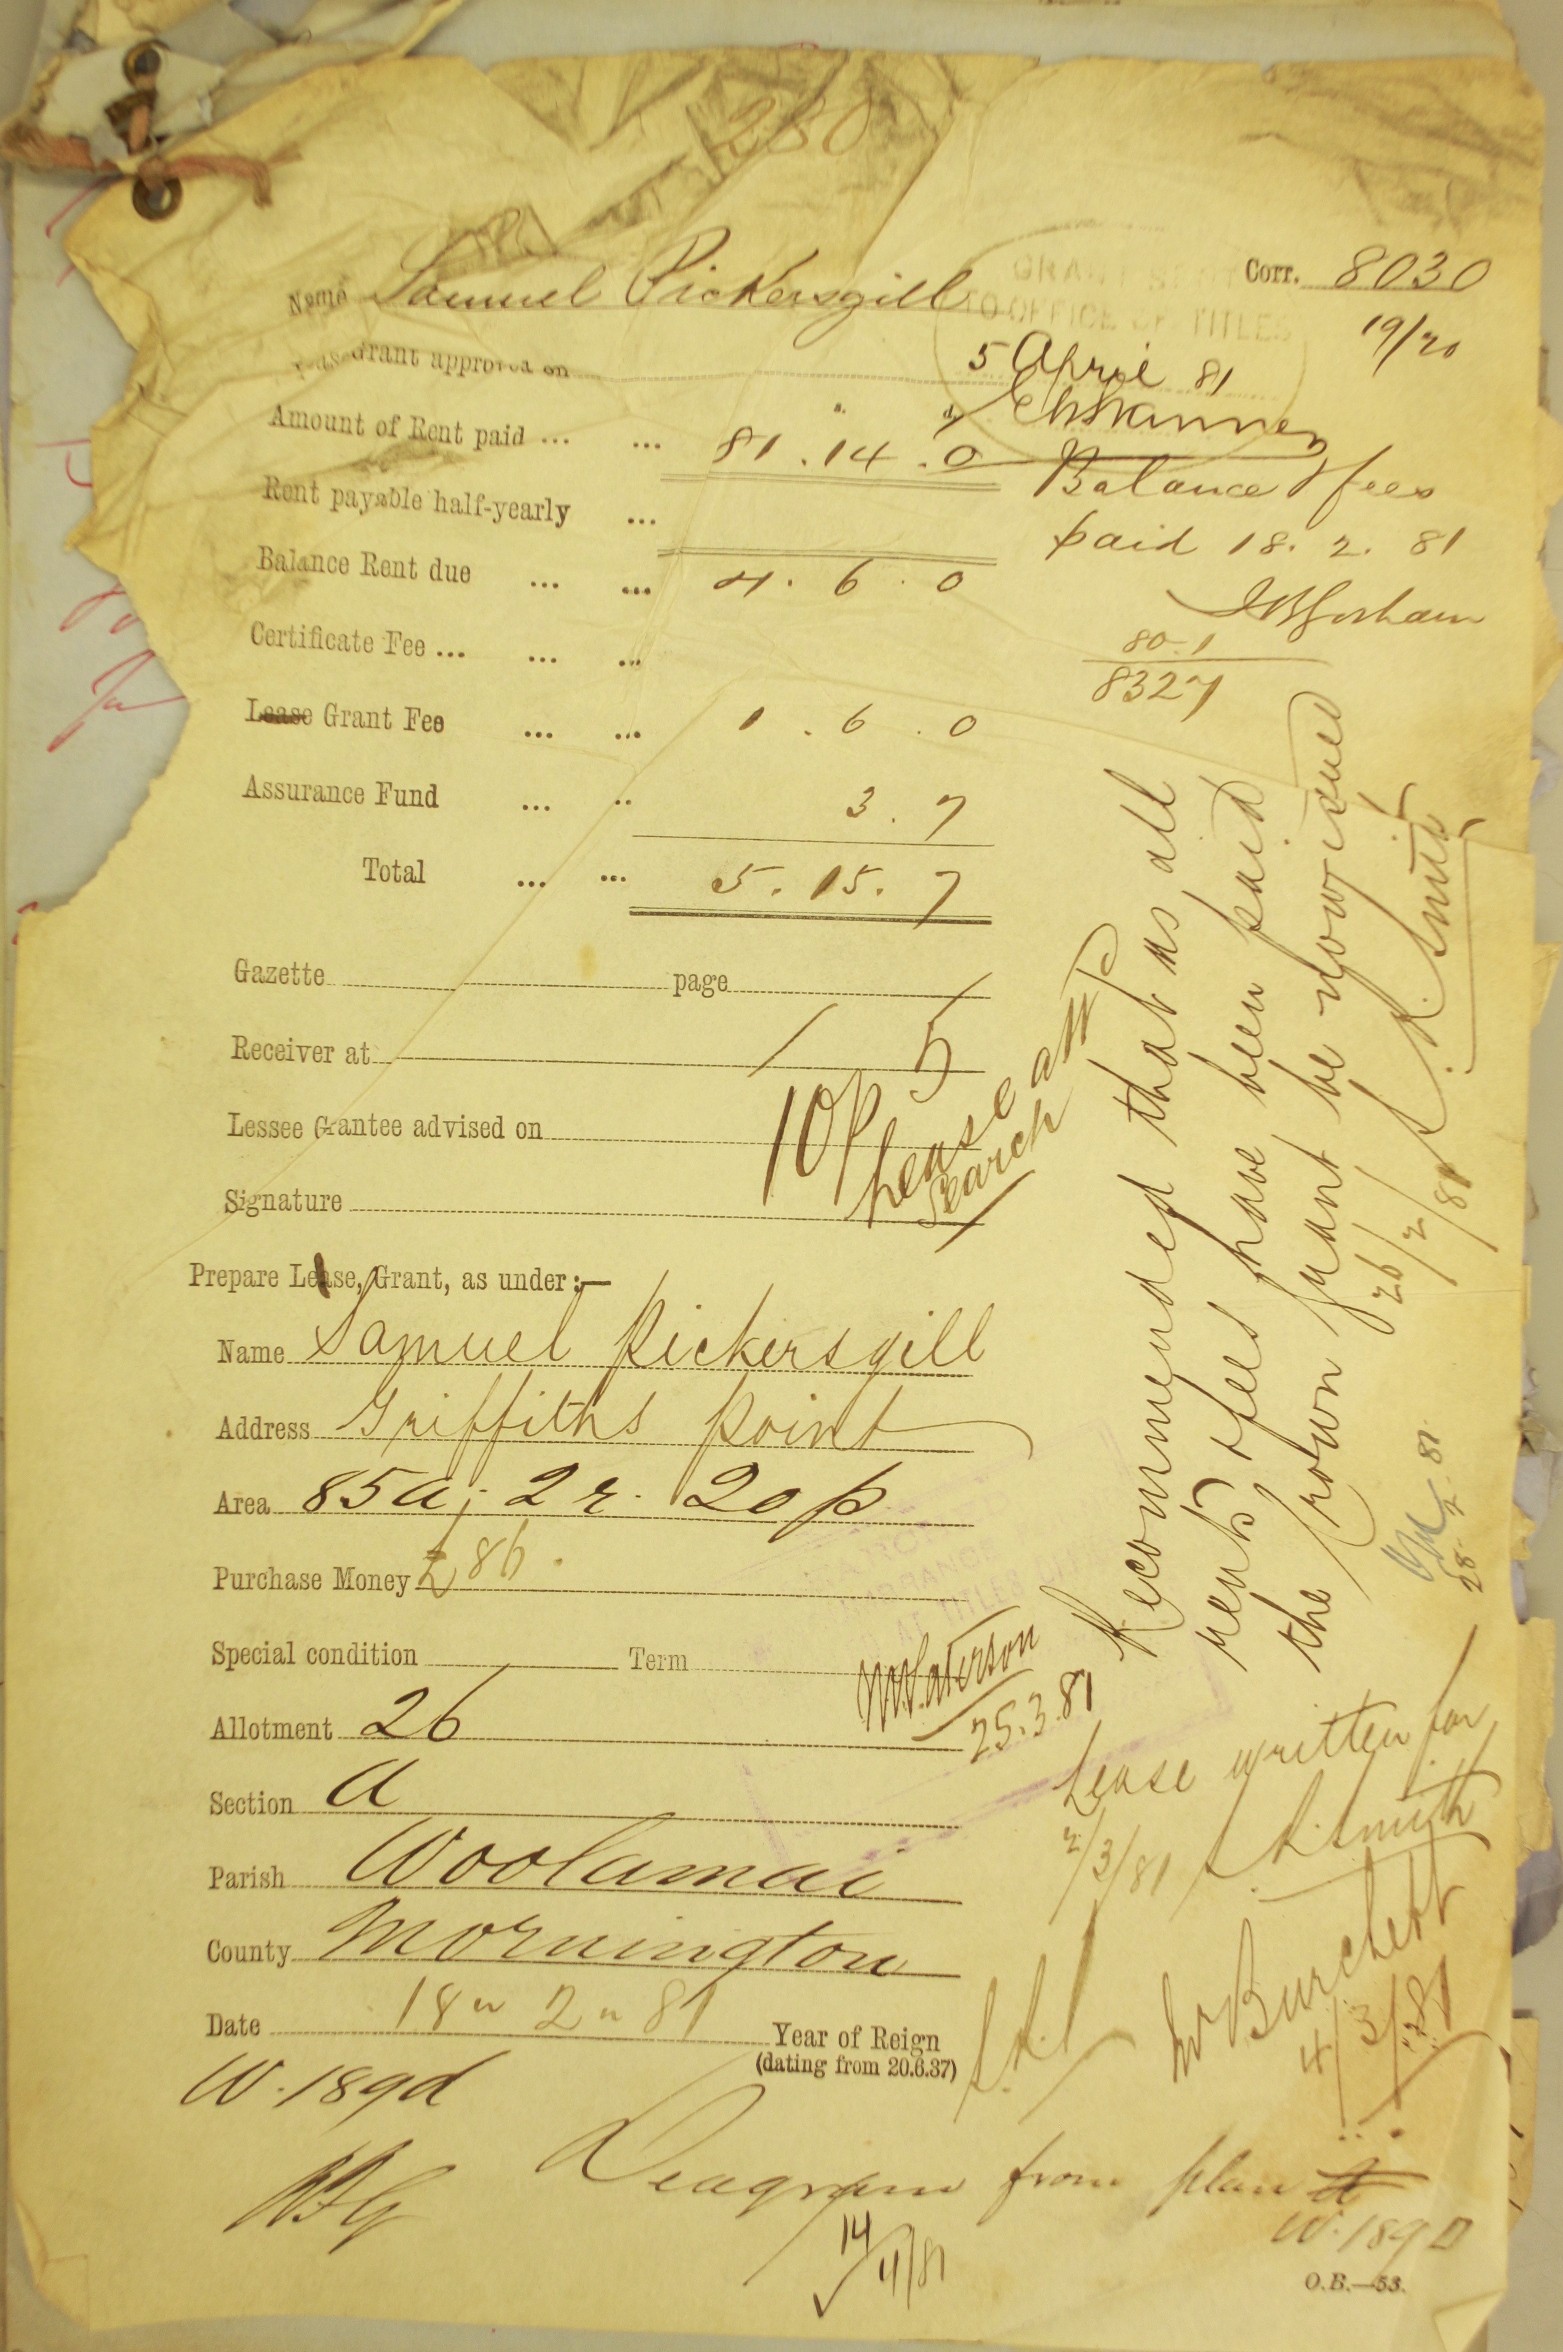 230
Name Samuel Pickersgill
Corr. 8030
19/20
GRANT SENT
TO OFFICE OF TITLES
5 April 81
Grant approved on
Amount of Rent paid ... ... 81 . 14 . 0
Balance & fees
paid 18. 2. 81
Rent payable half-yearly ...
Balance Rent due ... ... 4 . 6 . 0
80.1
8327
Certificate Fee ... ... ...
Lease Grant Fee ... ... 1 . 6 . 0
Assurance Fund ... .. 3 . 7
Total ... ... 5 . 15 . 7
Gazette page
Receiver at
Lessee Grantee advised on
Signature
Lease attd
Search
Recommended that as all
rents & fees have been paid
the Crown grant be now issued
26/2/81
28.2.81
Prepare Lease, Grant, as under:—
Name Samuel Pickersgill
Address Griffiths Point
Area 85a. 2r. 20p
Purchase Money £86.
Special condition Term
W Paterson
25.3.81
Allotment 26
Section A
Parish Woolamai
County Mornington
Date 18 " 2 " 81
Year of Reign
(dating from 20.6.37)
Lease written for
2/3/81 S. A. Smith
W Burchett
4/3/81
W. 189d
Diagram from plan
W. 189 D
14/4/81
O.B.—53.